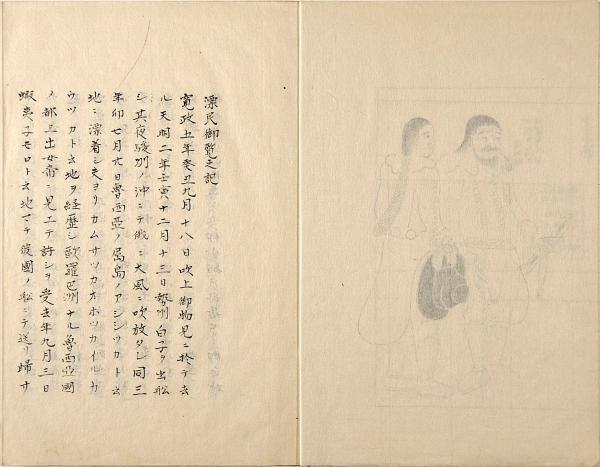 漂民御覧之記
寛政五年癸丑九月十八日吹上御物見ニ於テ去
ル天明二年壬寅十二月十三日勢州白子ヲ出船
シ其夜駿州ノ沖ニテ俄ニ大風ニ吹放タレ同三
年卯七月廿日魯西亜ノ属島ノアミシツカト云
地ニ漂着シ夫ヨリカムサツカオホツカイルカ
ウツカト云地ヲ経歴シ欧羅巴洲ナル魯西亜國
ノ都ニ出女帝ニ見エテ許シヲ受去年九月三日
蝦夷子モロト云地マテ彼國ノ舩ニテ送リ帰サ